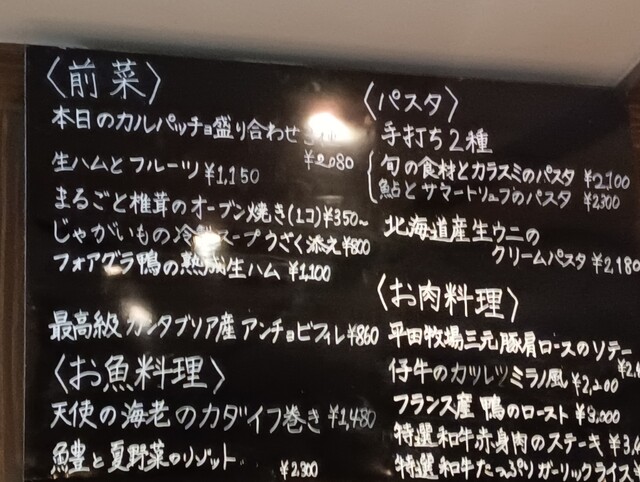 〈前菜〉
本日のカルパッチョ盛り合わせ
¥2080
生ハムとフルーツ ¥1,150
まるごと椎茸のオーブン焼き(1コ)¥350~
じゃがいもの冷製スープうざく添え¥800
フォアグラ鴨の熟成生ハム ¥1,100
最高級カンタブリア産アンチョビフィレ¥860
〈お魚料理〉
天使の海老のカダイフ巻き ¥1,480
鱧と夏野菜のリゾット ¥2300
〈パスタ〉
手打ち2種
旬の食材とカラスミのパスタ ¥2,100
鮎とサマートリュフのパスタ ¥2300
北海道産生ウニの
クリームパスタ ¥2,180
〈お肉料理〉
平田牧場三元豚肩ロースのソテー
仔牛のカツレツミラノ風 ¥2,200
フランス産鴨のロースト ¥3,000
特選和牛赤身肉のステーキ
特選和牛たっぷりガーリックライス